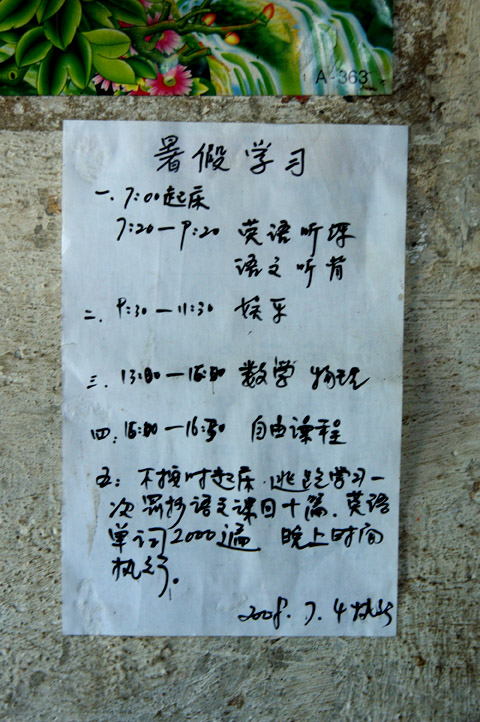 A-363
暑假学习
一. 7:00起床
7:20—9:20 英语听
语文听背
二. 9:30—11:30 娱乐
三. 13:00—16:00 数学 物理
四. 16:00—16:50 自由课程
五: 不按时起床.逃跑学习一
次罚抄语文课目十篇.英语
单词2000遍 晚上时间
执行。
2008.7.4执行